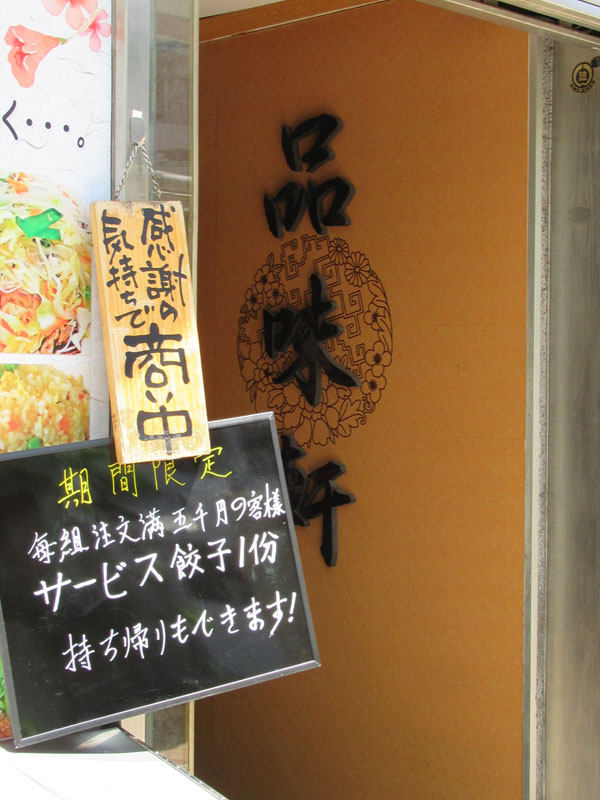 く・・・。
感謝の
気持ちで
商い中
品味軒
期間限定
毎組注文満五千月の客様
サービス餃子1份
持ち帰りもできます!